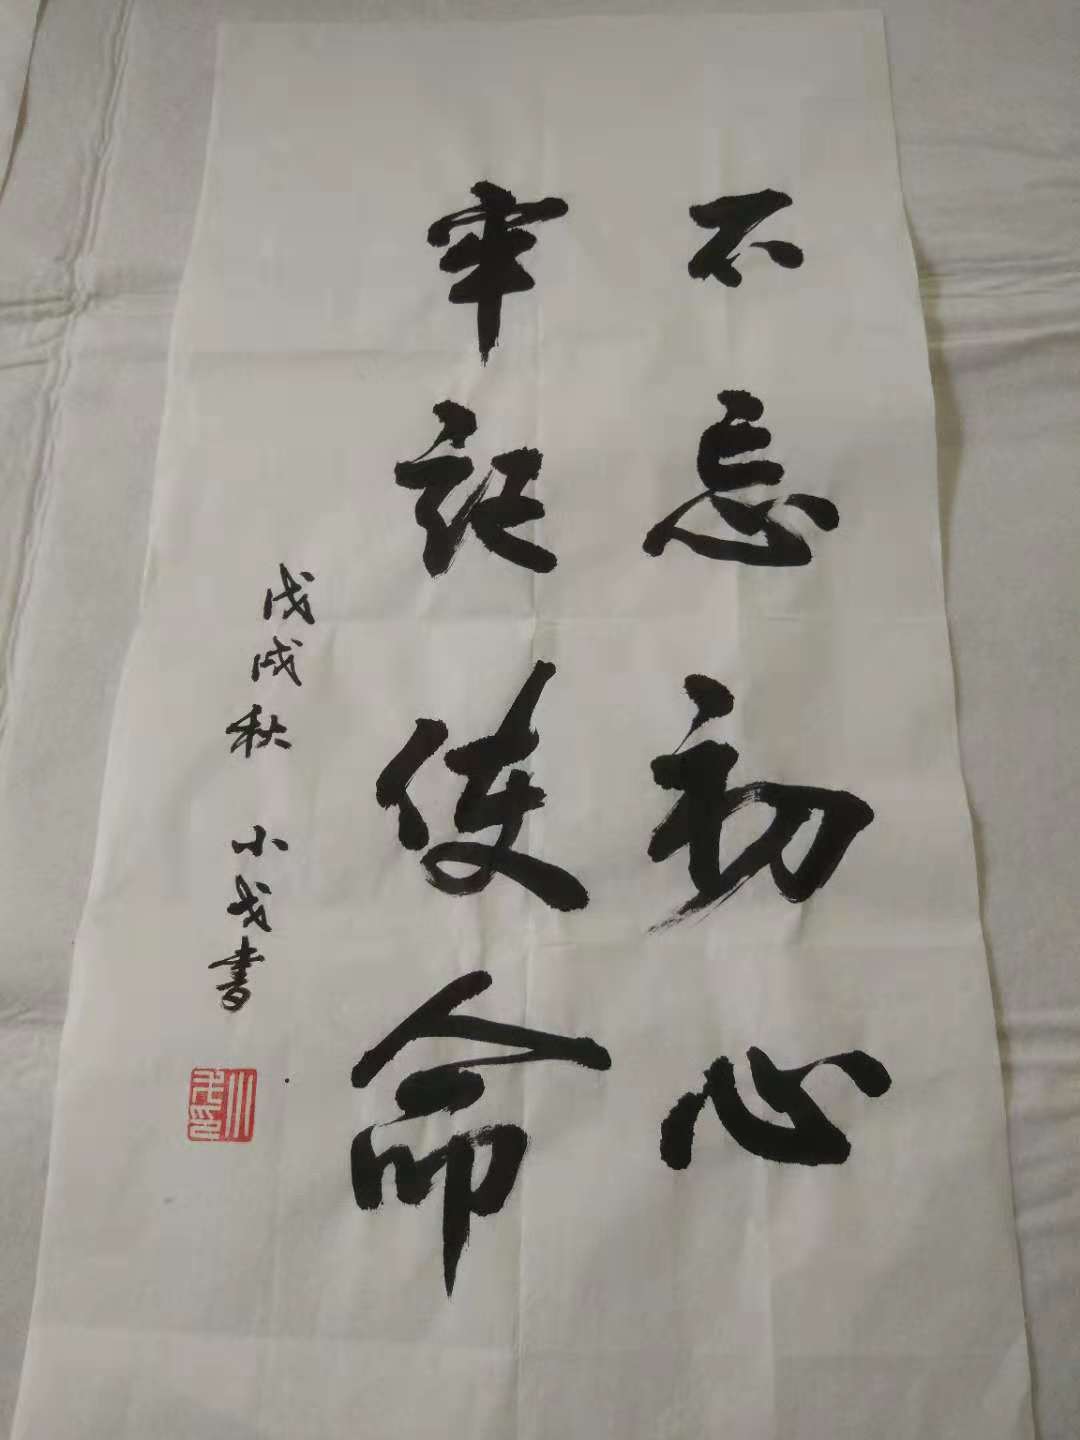 不忘初心
牢记使命
戊戌秋 小戎書